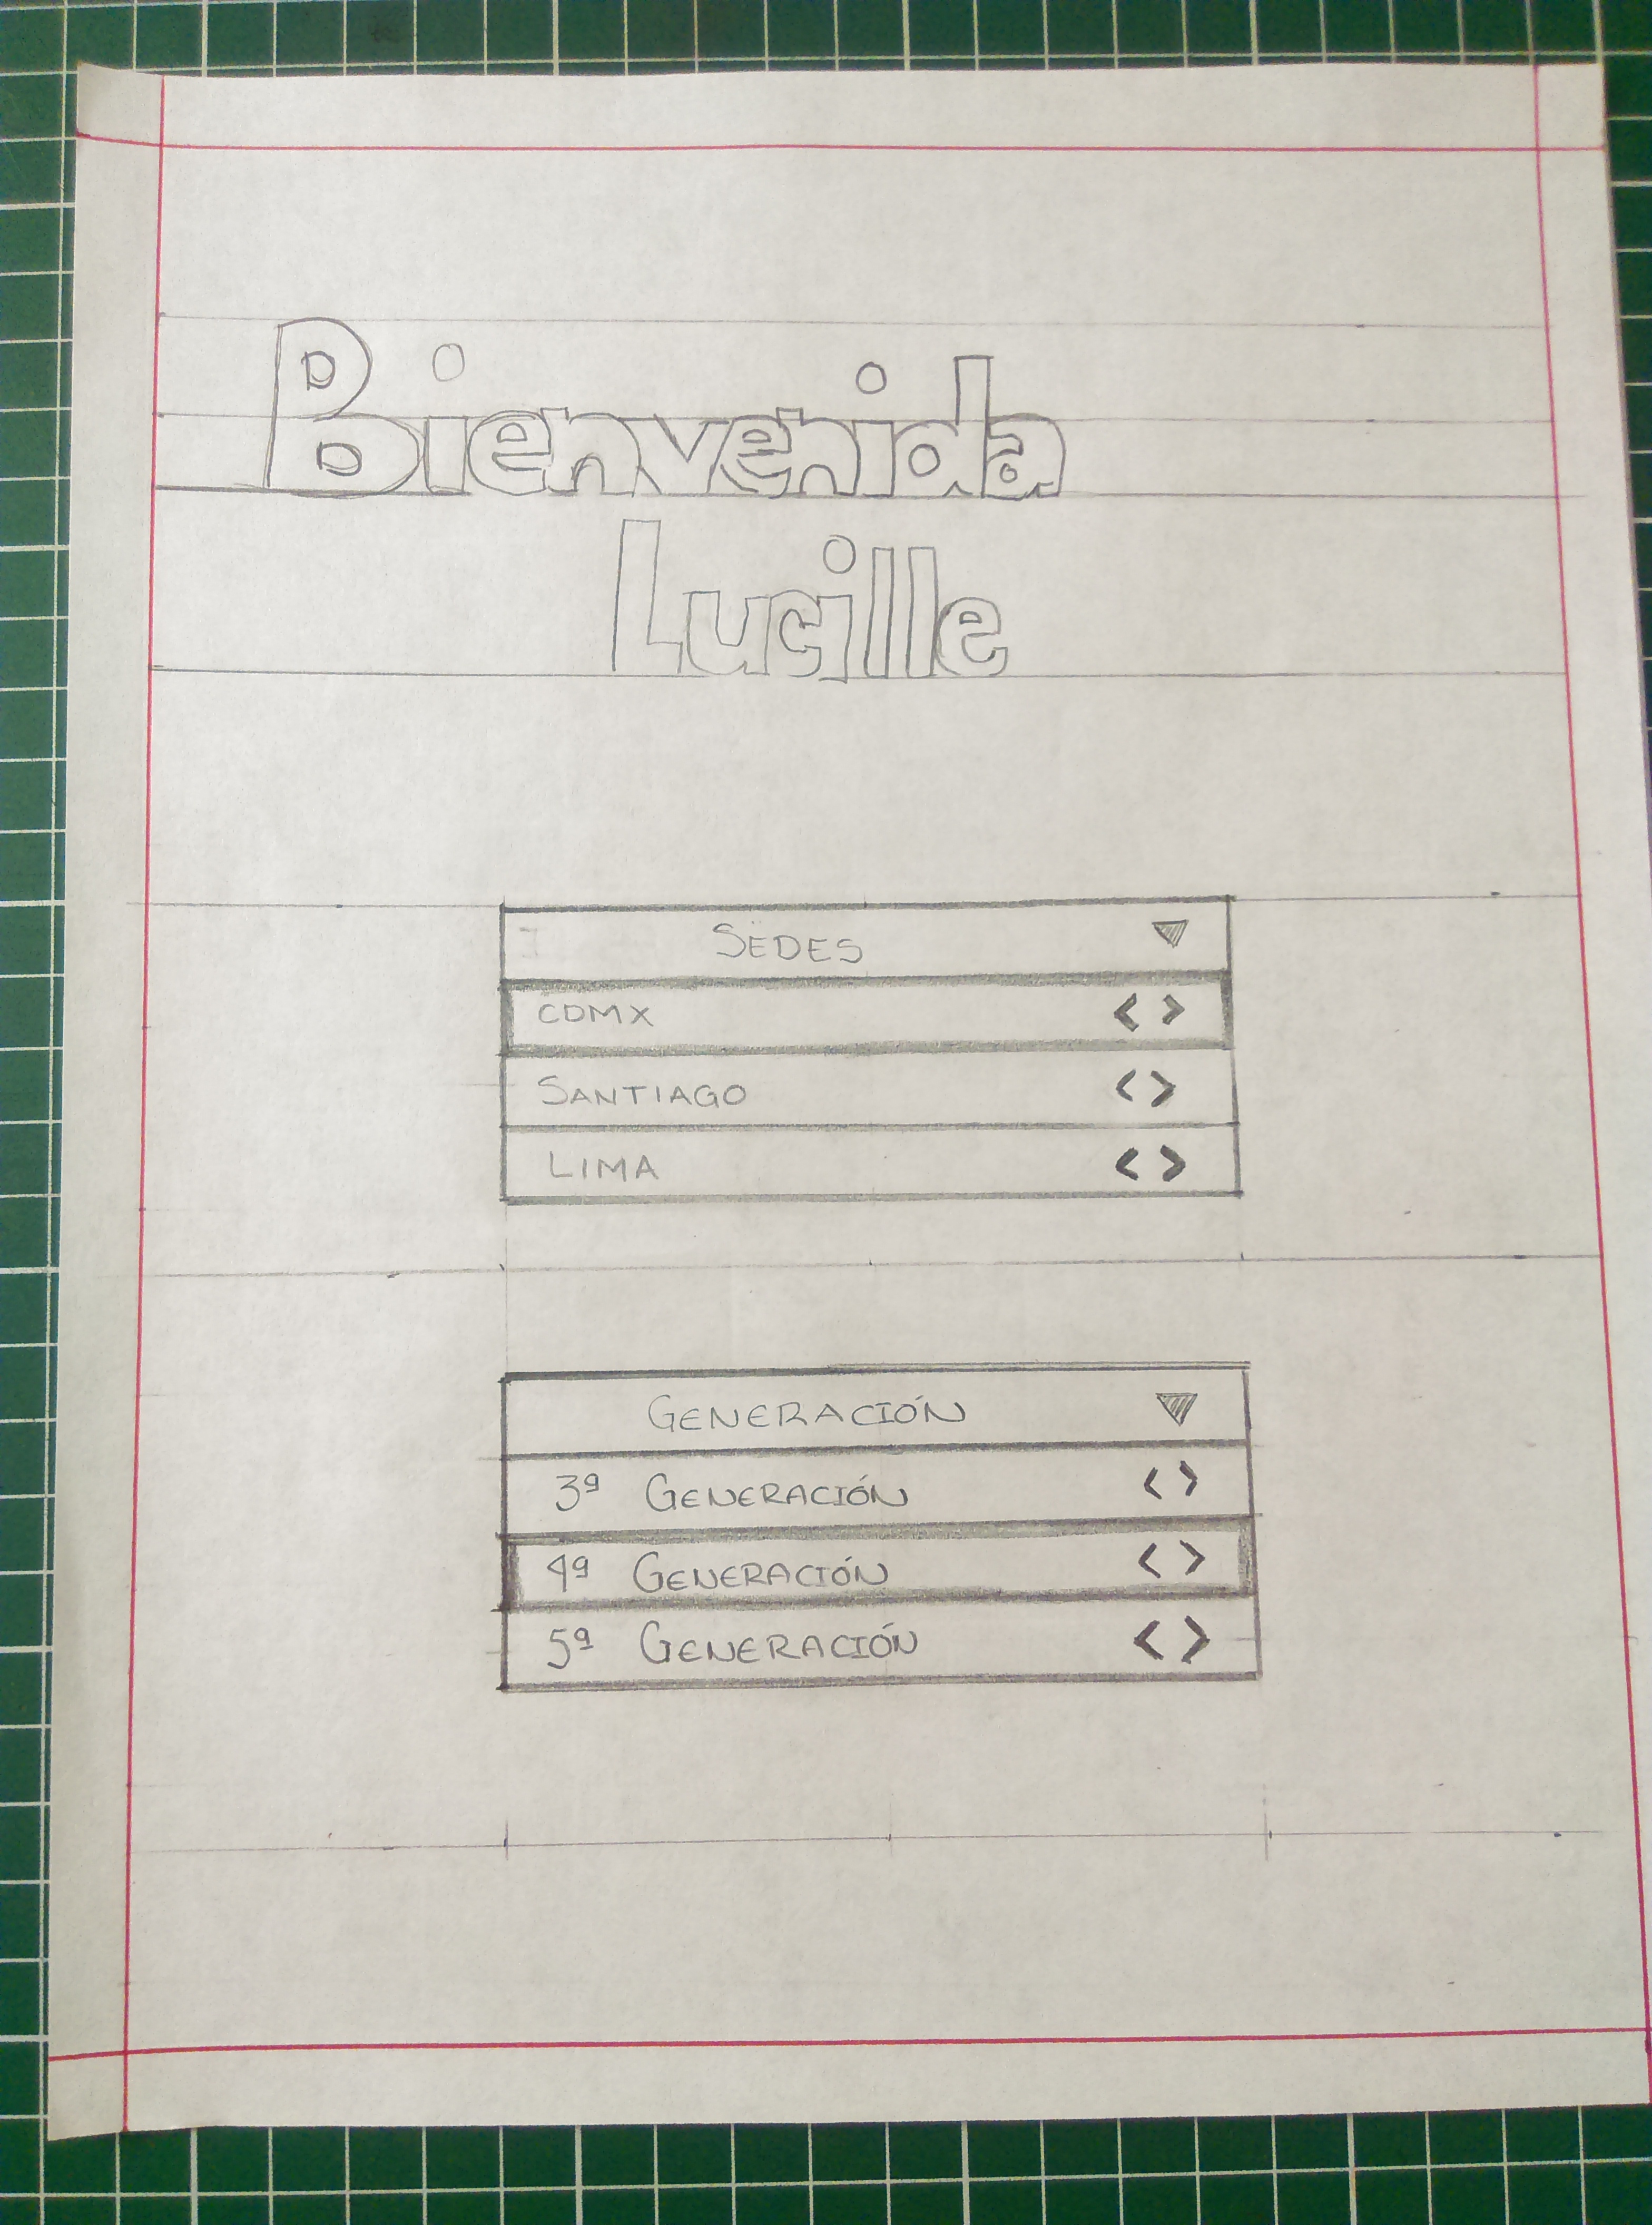 Bienvenida
Lucille
SEDES
CDMX < >
SANTIAGO < >
LIMA < >
GENERACIÓN
3ª GENERACIÓN < >
4ª GENERACIÓN < >
5ª GENERACIÓN < >